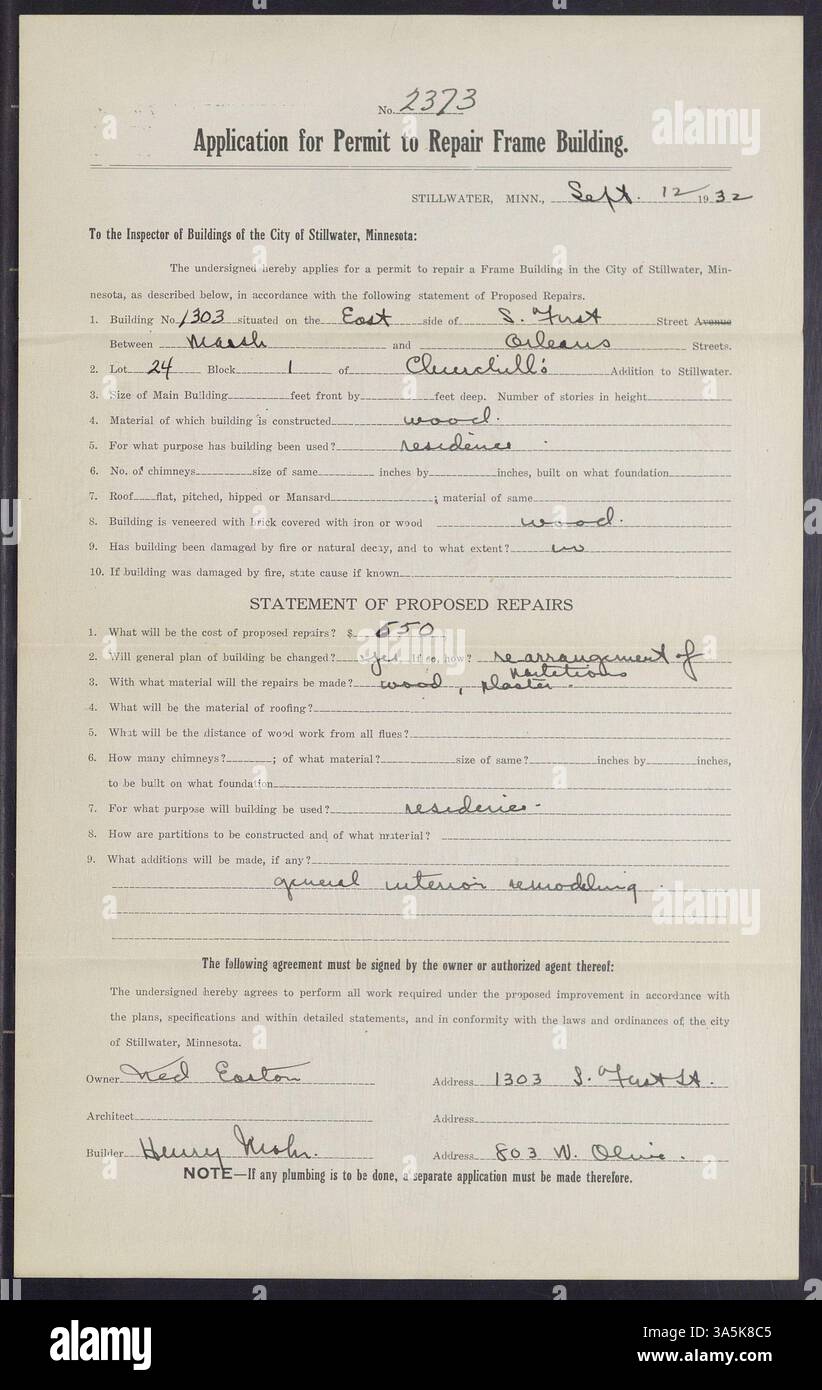 No. 2373
Application for Permit to Repair Frame Building.
STILLWATER, MINN., Sept. 12 1932
To the Inspector of Buildings of the City of Stillwater, Minnesota:
The undersigned hereby applies for a permit to repair a Frame Building in the City of Stillwater, Min-
nesota, as described below, in accordance with the following statement of Proposed Repairs.
1. Building No. 1303 situated on the East side of S. First Street Avenue
Between Marsh and Orleans Streets.
2. Lot 24 Block 1 of Churchill's Addition to Stillwater.
3. Size of Main Building feet front by feet deep. Number of stories in height
4. Material of which building is constructed wood.
5. For what purpose has building been used? residence
6. No. of chimneys size of same inches by inches, built on what foundation
7. Roof flat, pitched, hipped or Mansard ; material of same
8. Building is veneered with brick covered with iron or wood wood.
9. Has building been damaged by fire or natural decay, and to what extent? no
10. If building was damaged by fire, state cause if known
STATEMENT OF PROPOSED REPAIRS
1. What will be the cost of proposed repairs? $ 550
2. Will general plan of building be changed? yes If so, how? rearrangement of
partitions
3. With what material will the repairs be made? wood, plaster.
4. What will be the material of roofing?
5. What will be the distance of wood work from all flues?
6. How many chimneys? ; of what material? size of same? inches by inches,
to be built on what foundation
7. For what purpose will building be used? residence
8. How are partitions to be constructed and of what material?
9. What additions will be made, if any?
general interior remodeling.
The following agreement must be signed by the owner or authorized agent thereof:
The undersigned hereby agrees to perform all work required under the proposed improvement in accordance with
the plans, specifications and within detailed statements, and in conformity with the laws and ordinances of the city
of Stillwater, Minnesota.
Owner Ned Easton Address 1303 S. First St.
Architect Address
Builder Henry Mohr. Address 803 W. Olive.
NOTE—If any plumbing is to be done, a separate application must be made therefore.
alamy
Image ID: 3A5K8C5
www.alamy.com